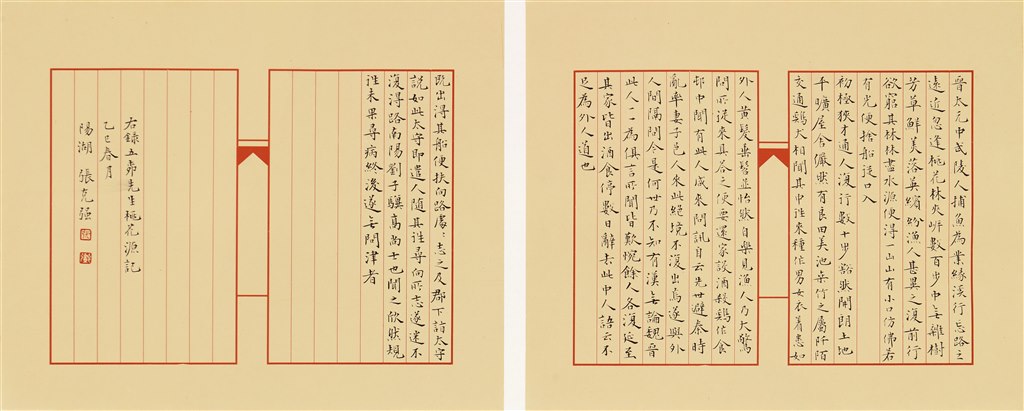 晉太元中武陵人捕魚為業緣溪行忘路之
遠近忽逢桃花林夾岸數百步中無雜樹
芳草鮮美落英繽紛漁人甚異之復前行
欲窮其林林盡水源便得一山山有小口仿佛若
有光便捨船從口入
初極狹才通人復行數十步豁然開朗土地
平曠屋舍儼然有良田美池桑竹之屬阡陌
交通雞犬相聞其中往來種作男女衣着悉如
外人黃髮垂髫並怡然自樂見漁人乃大驚
問所從來具答之便要還家設酒殺雞作食
邨中聞有此人咸來問訊自云先世避秦時
亂率妻子邑人來此絕境不復出焉遂與外
人間隔問今是何世乃不知有漢無論魏晉
此人一一為俱言所聞皆歎惋餘人各復延至
其家皆出酒食停數日辭去此中人語云不
足為外人道也
既出得其船便扶向路處〻志之及郡下詣太守
說如此太守即遣人隨其往尋向所志遂迷不
復得路南陽劉子驥高尚士也聞之欣然規
往未果尋病終後遂無問津者
右錄五柳先生桃花源記
乙巳春月
陽湖 張克强